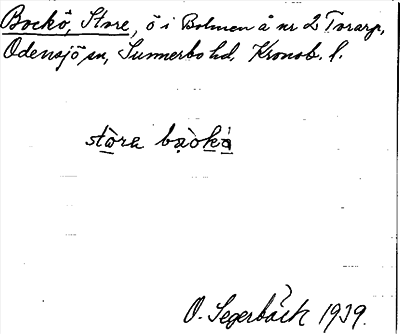 Bockö, Store, ö i Bolmen å nr 2 Torarp,
Odensjö sn, Sunnerbo hd, Kronob. l.
stòra bàokà
O. Segerbäck 1939.